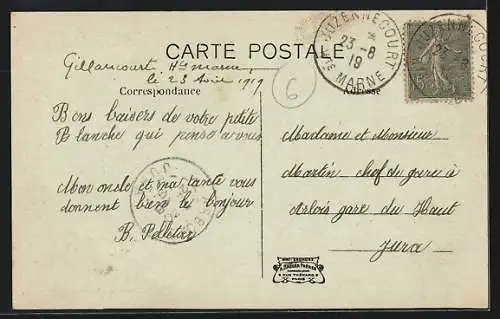 CARTE POSTALE
JUZENNECOURT
23 - 8
19
Hte MARNE
Gillancourt Hte Marne
le 23 Août 1919
Correspondance
Adresse
6
Bons baisers de votre petite
Blanche qui pense à vous
Mon oncle et ma tante vous
donnent bien le bonjour
B. Pelletier
Madame et Monsieur
Martin chef de gare à
Arbois gare du Haut
Jura
PARIS